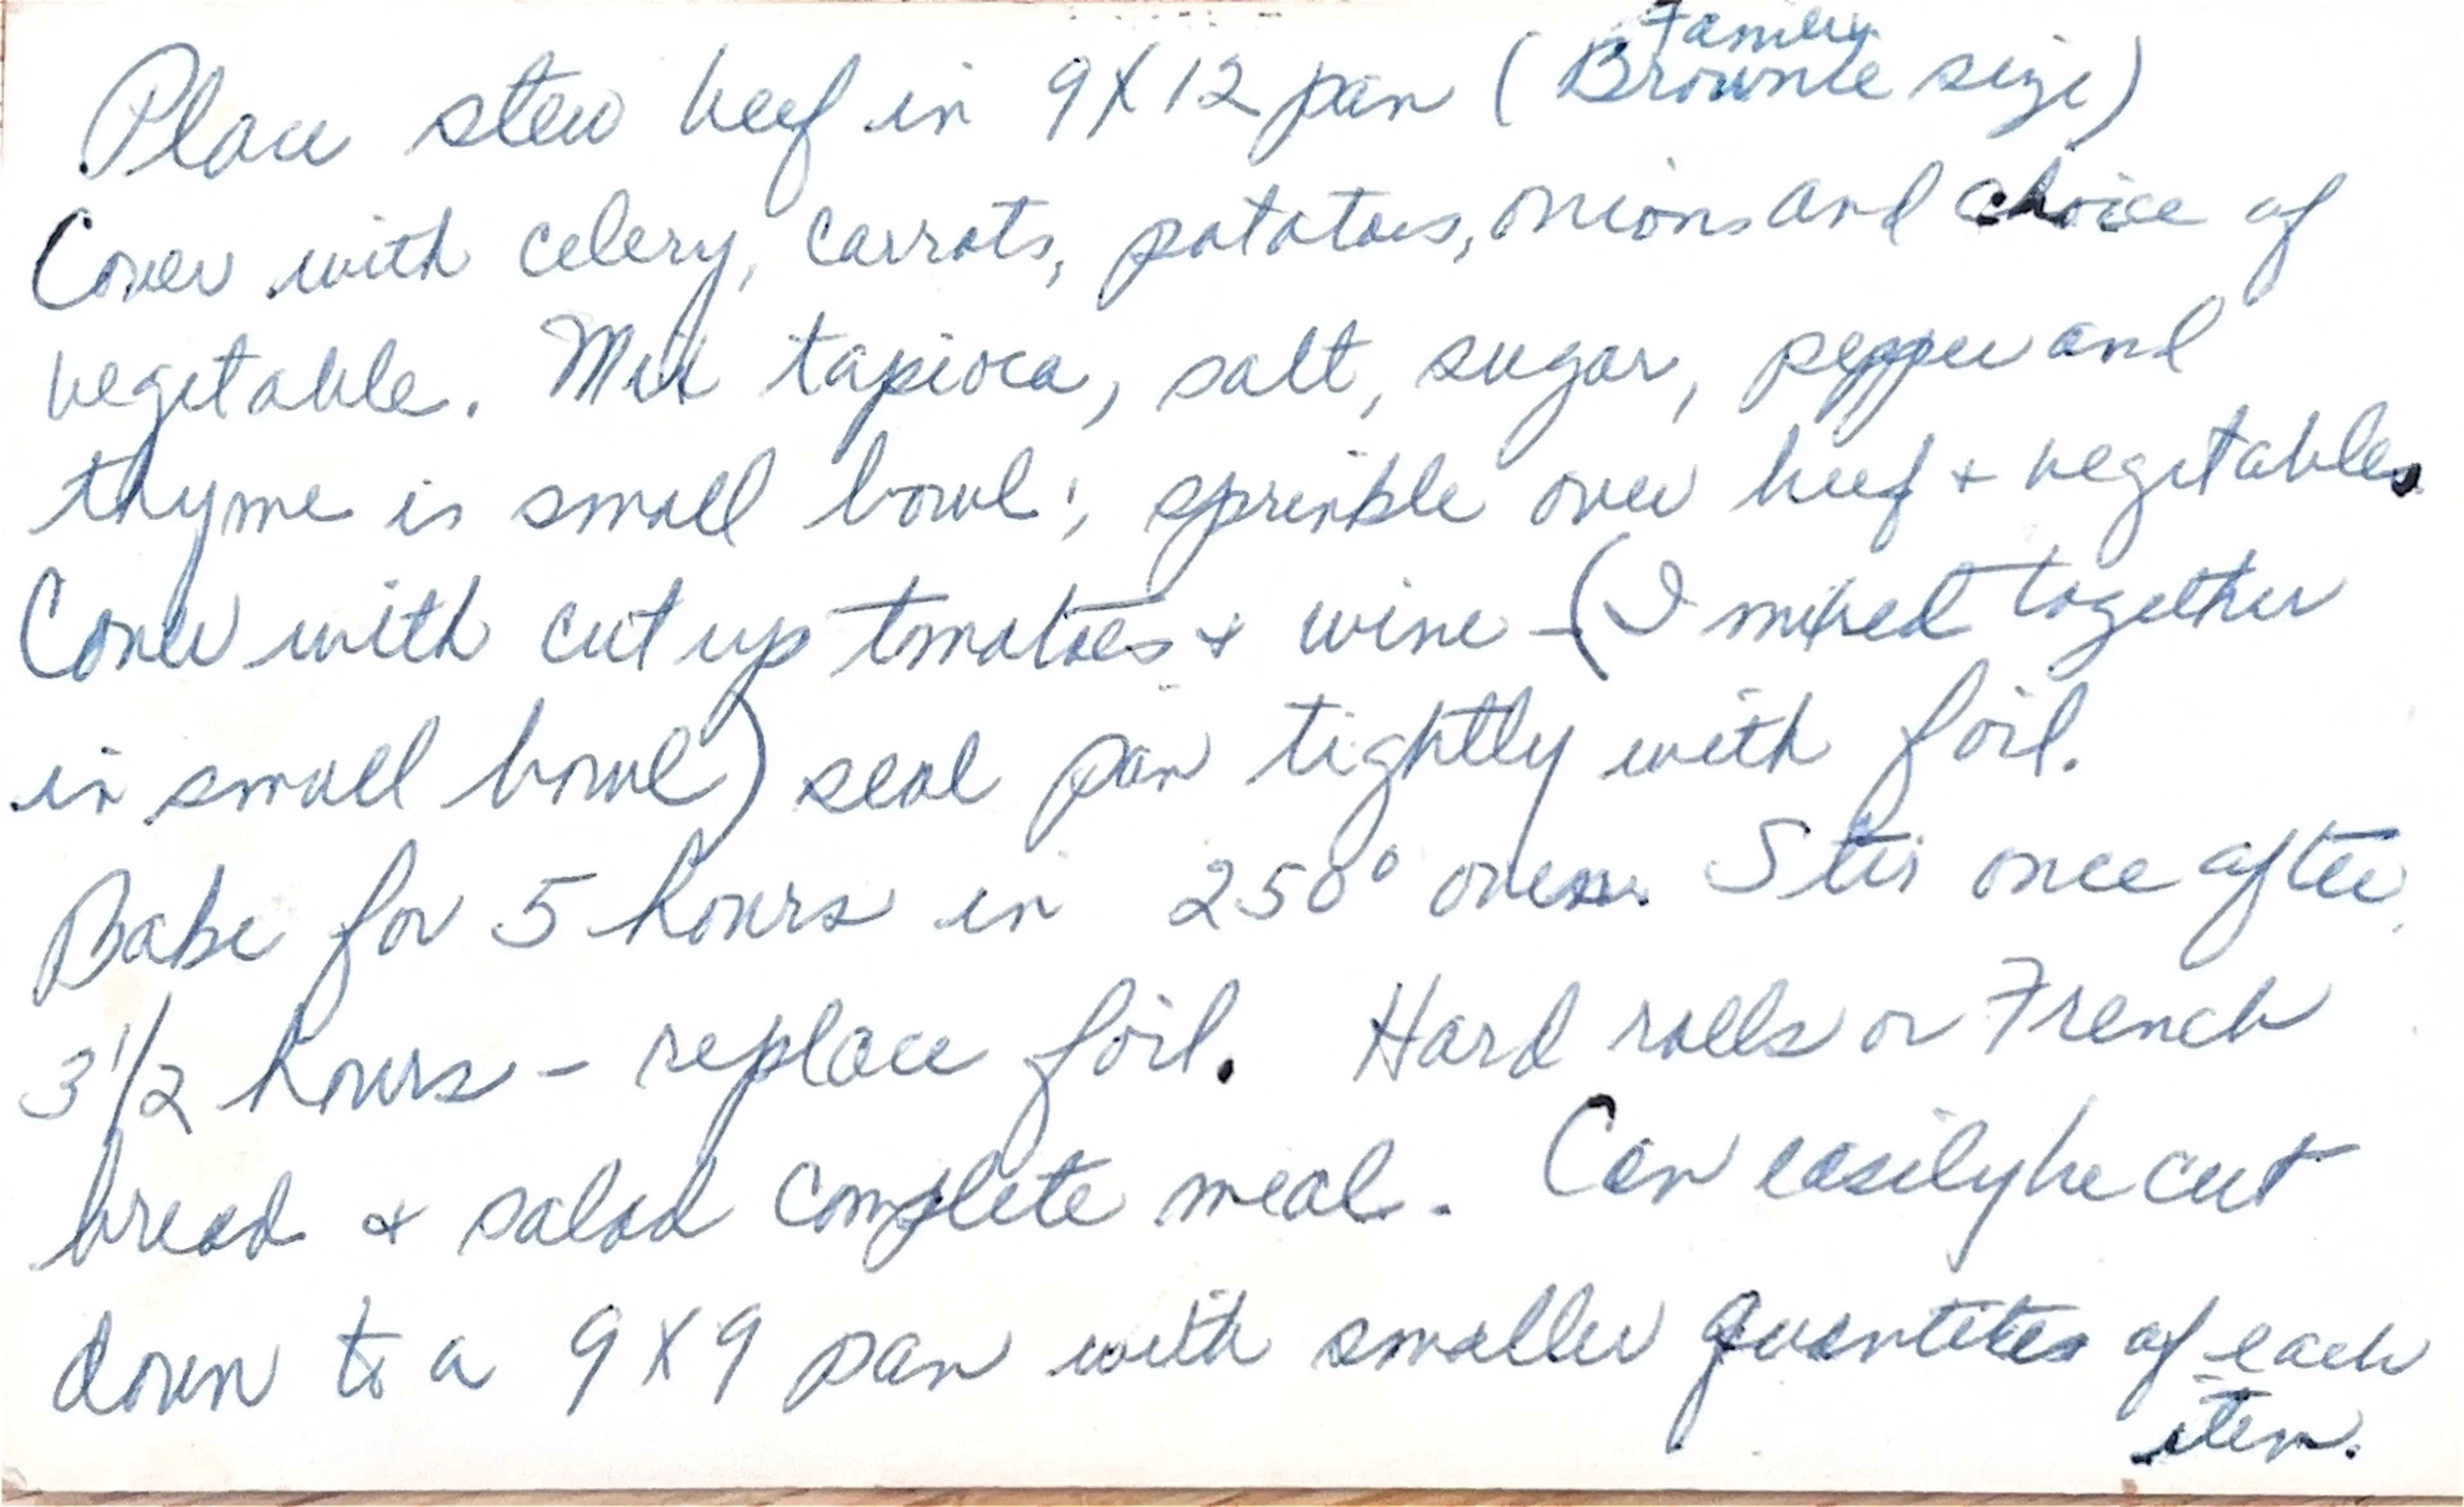 Place stew beef in 9X12 pan (Family Brownie size)
Cover with celery, carrots, potatoes, onions and choice of
vegetable. Mix tapioca, salt, sugar, pepper and
thyme in small bowl; sprinkle over beef + vegetables.
Cover with cut up tomatoes + wine - (I mixed together
in small bowl) seal pan tightly with foil.
Bake for 5 hours in 250° oven. Stir once after
3 1/2 hours - replace foil. Hard rolls or French
bread & salad complete meal. Can easily be cut
down to a 9X9 pan with smaller quantites of each
item.